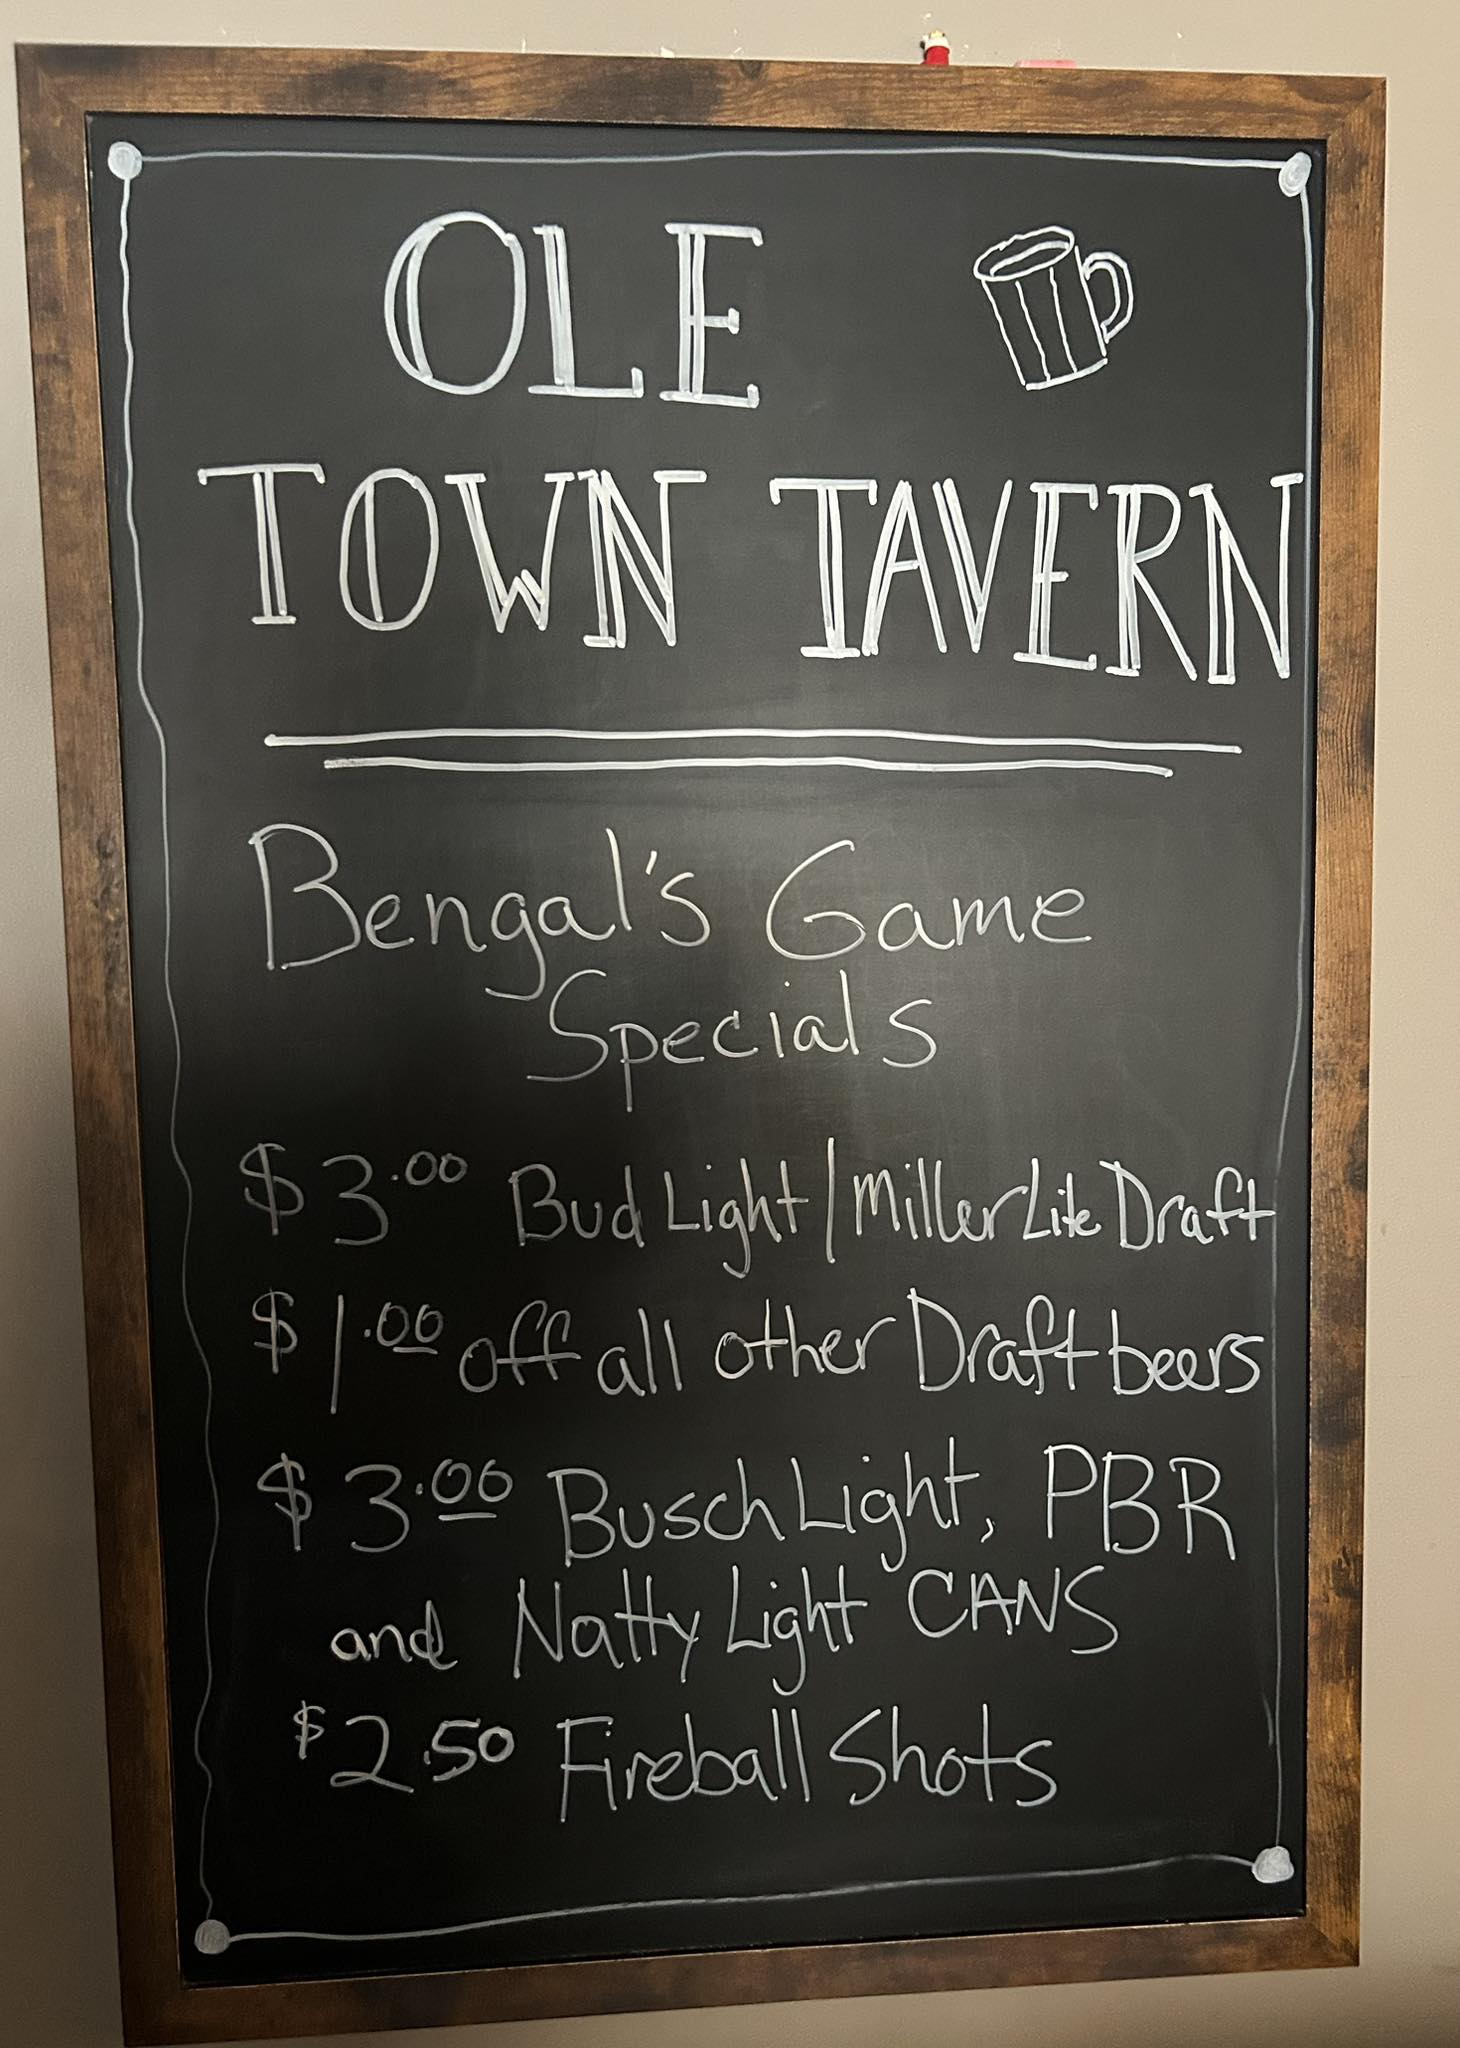 OLE
TOWN TAVERN
Bengal's Game
Specials
$3.00 Bud Light/Miller Lite Draft
$1.00 off all other Draft beers
$3.00 Busch Light, PBR
and Natty Light CANS
$2.50 Fireball Shots